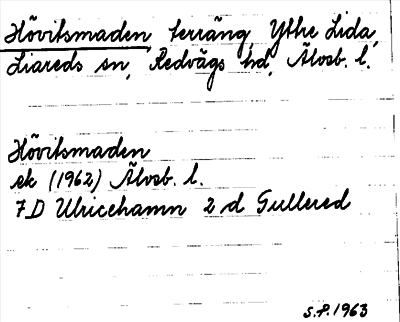 Hövitsmaden terräng, Ythe Lida,
Liareds sn, Redvägs hd, Älvsb. l.
Hövitsmaden
ek (1962) Älvsb. l.
7D Ulricehamn 2 d Gullered
S.P. 1963